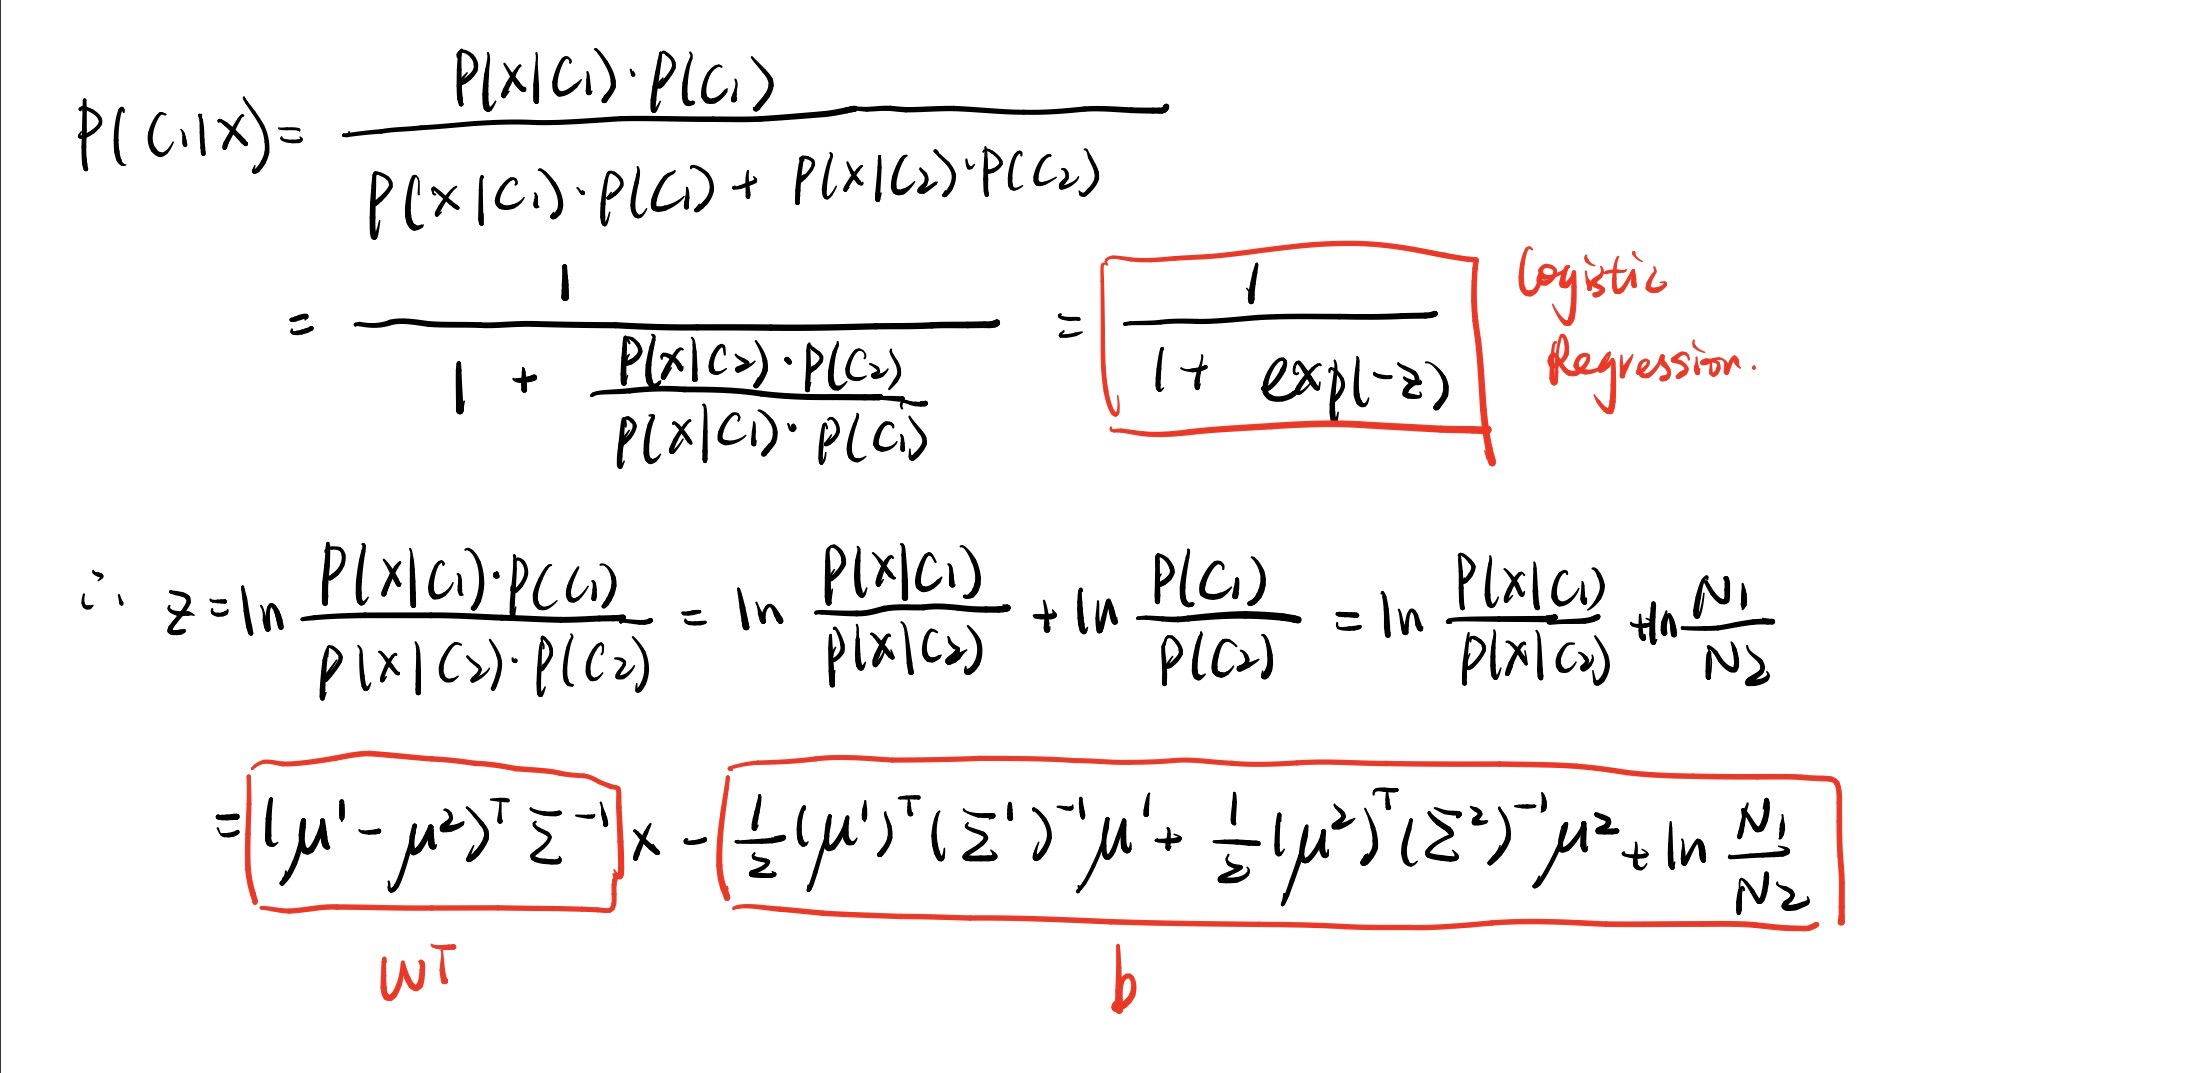 P(C₁|X) = P(X|C₁)·P(C₁) / (P(X|C₁)·P(C₁) + P(X|C₂)·P(C₂))
= 1 / (1 + (P(X|C₂)·P(C₂)) / (P(X|C₁)·P(C₁))) = 1 / (1 + exp(-z))
Logistic
Regression.
∴ z = ln (P(X|C₁)·P(C₁)) / (P(X|C₂)·P(C₂)) = ln P(X|C₁) / P(X|C₂) + ln P(C₁) / P(C₂) = ln P(X|C₁) / P(X|C₂) + ln N₁ / N₂
= (μ¹ - μ²)ᵀ Σ⁻¹ x - 1/2 (μ¹)ᵀ (Σ¹)⁻¹ μ¹ + 1/2 (μ²)ᵀ (Σ²)⁻¹ μ² + ln N₁ / N₂
wᵀ b